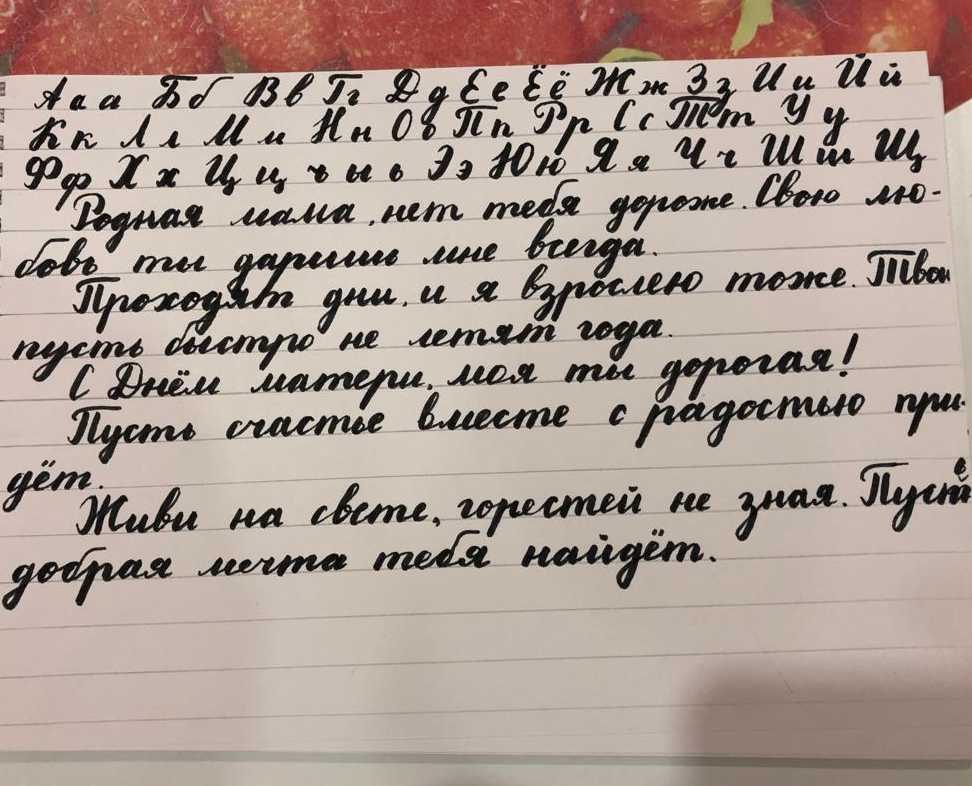 А а а Б б В в Г г Д д Е е Ё ё Ж ж З з И и Й й
К к Л л М м Н н О о П п Р р С с Т т У у
Ф ф Х х Ц ц ъ ы ь Э э Ю ю Я я Ч ч Ш ш Щ
Родная мама, нет тебя дороже. Свою лю-
бовь ты даришь мне всегда.
Проходят дни, и я взрослею тоже. Твои
пусть быстро не летят года.
С Днём матери, моя ты дорогая!
Пусть счастье вместе с радостью при-
дёт.
Живи на свете, горестей не зная. Пусть
добрая мечта тебя найдёт.